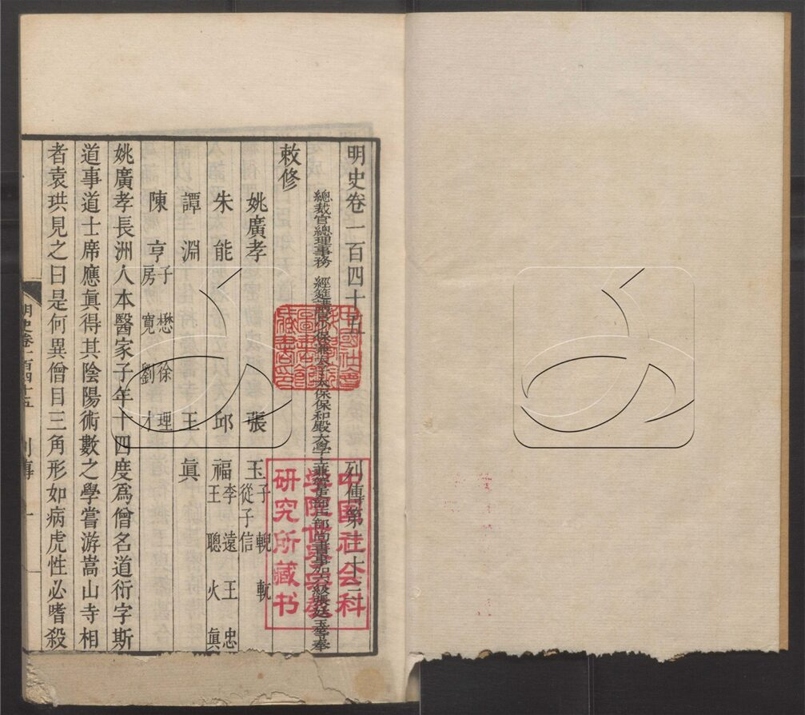 明史卷一百四十五 列傳第三十三
總裁官總理事務 經筵講官少保兼太子太保保和殿大學士兼管吏部戶部尚書事加六級張廷玉等奉
敕修
姚廣孝 張玉 子輗 軏 從子信
朱能 邱福 李遠 王忠 王聰 火眞
譚淵 王眞
陳亨 子懋 徐理 房寬 劉才
姚廣孝長洲人本醫家子年十四度爲僧名道衍字斯
道事道士席應眞得其陰陽術數之學嘗游嵩山寺相
者袁珙見之曰是何異僧目三角形如病虎性必嗜殺
明史卷一百四十五 列傳 一
中国社会科
學院世界宗教
研究所藏书